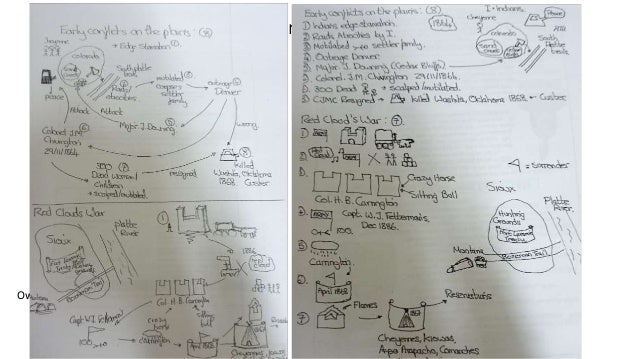 Early conflicts on the plains: (8)
Cheyenne
colorado
→ Edge Starvation
Sand Creek
South Platte trails
Roads/
atrocities
mutilated
corpses
settler
family
outrage
Denver
peace
Attack
Attack
Major J. Downing
wrong
Colonel J.M
Chivington
29/11/1864
300
Dead women/
children
→ scalped/mutilated.
resigned
killed
Washita, Oklahoma
1868. Custer
Red Clouds War
Platte
River
Sioux
Bozeman Trail
Montana
1866
Red Cloud
Col H. B. Carrington
Capt W.J. Fetterman
100
crazy
horse
sitting
bull
carrington
April 1868
Cheyennes, Kiowas
Ov
Early conflicts on the plains: (8)
1) Indians edge starvation.
2) Roads Atrocities by I.
3) Mutilated settler family.
4) Outrage Denver
5) Major J. Downing (Cedar Bluffs)
6) Colonel. J.M. Chivington 29/11/1864.
7) 300 Dead → scalped/mutilated.
8) CJMC Resigned → killed Washita, Oklahoma 1868. ← Custer
1864
I = Indians.
Cheyenne
Peace
Sand Creek
colorado
South
Platte
trails
Red Cloud's War: (7)
Crazy Horse
Sitting Bull
Col. H. B. Carrington
Capt. W. J. Fetterman,
Dec 1886.
100
Carrington.
April 1868
Flames
Reservations
1868
Cheyennes, Kiowas,
Arapacho, Comanches
= Surrender
Sioux
Platte
River.
Hunting
Grounds
Bozeman Trail
Montana